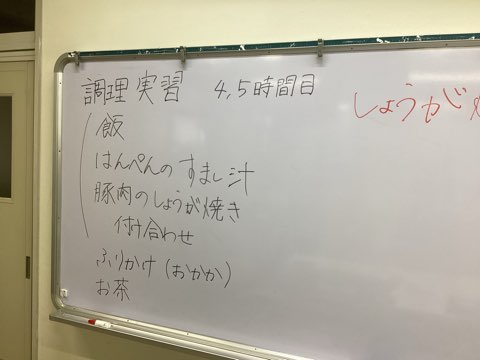 調理実習 4,5時間目
飯
はんぺんのすまし汁
豚肉のしょうが焼き
付け合わせ
ふりかけ(おかか)
お茶
しょうが